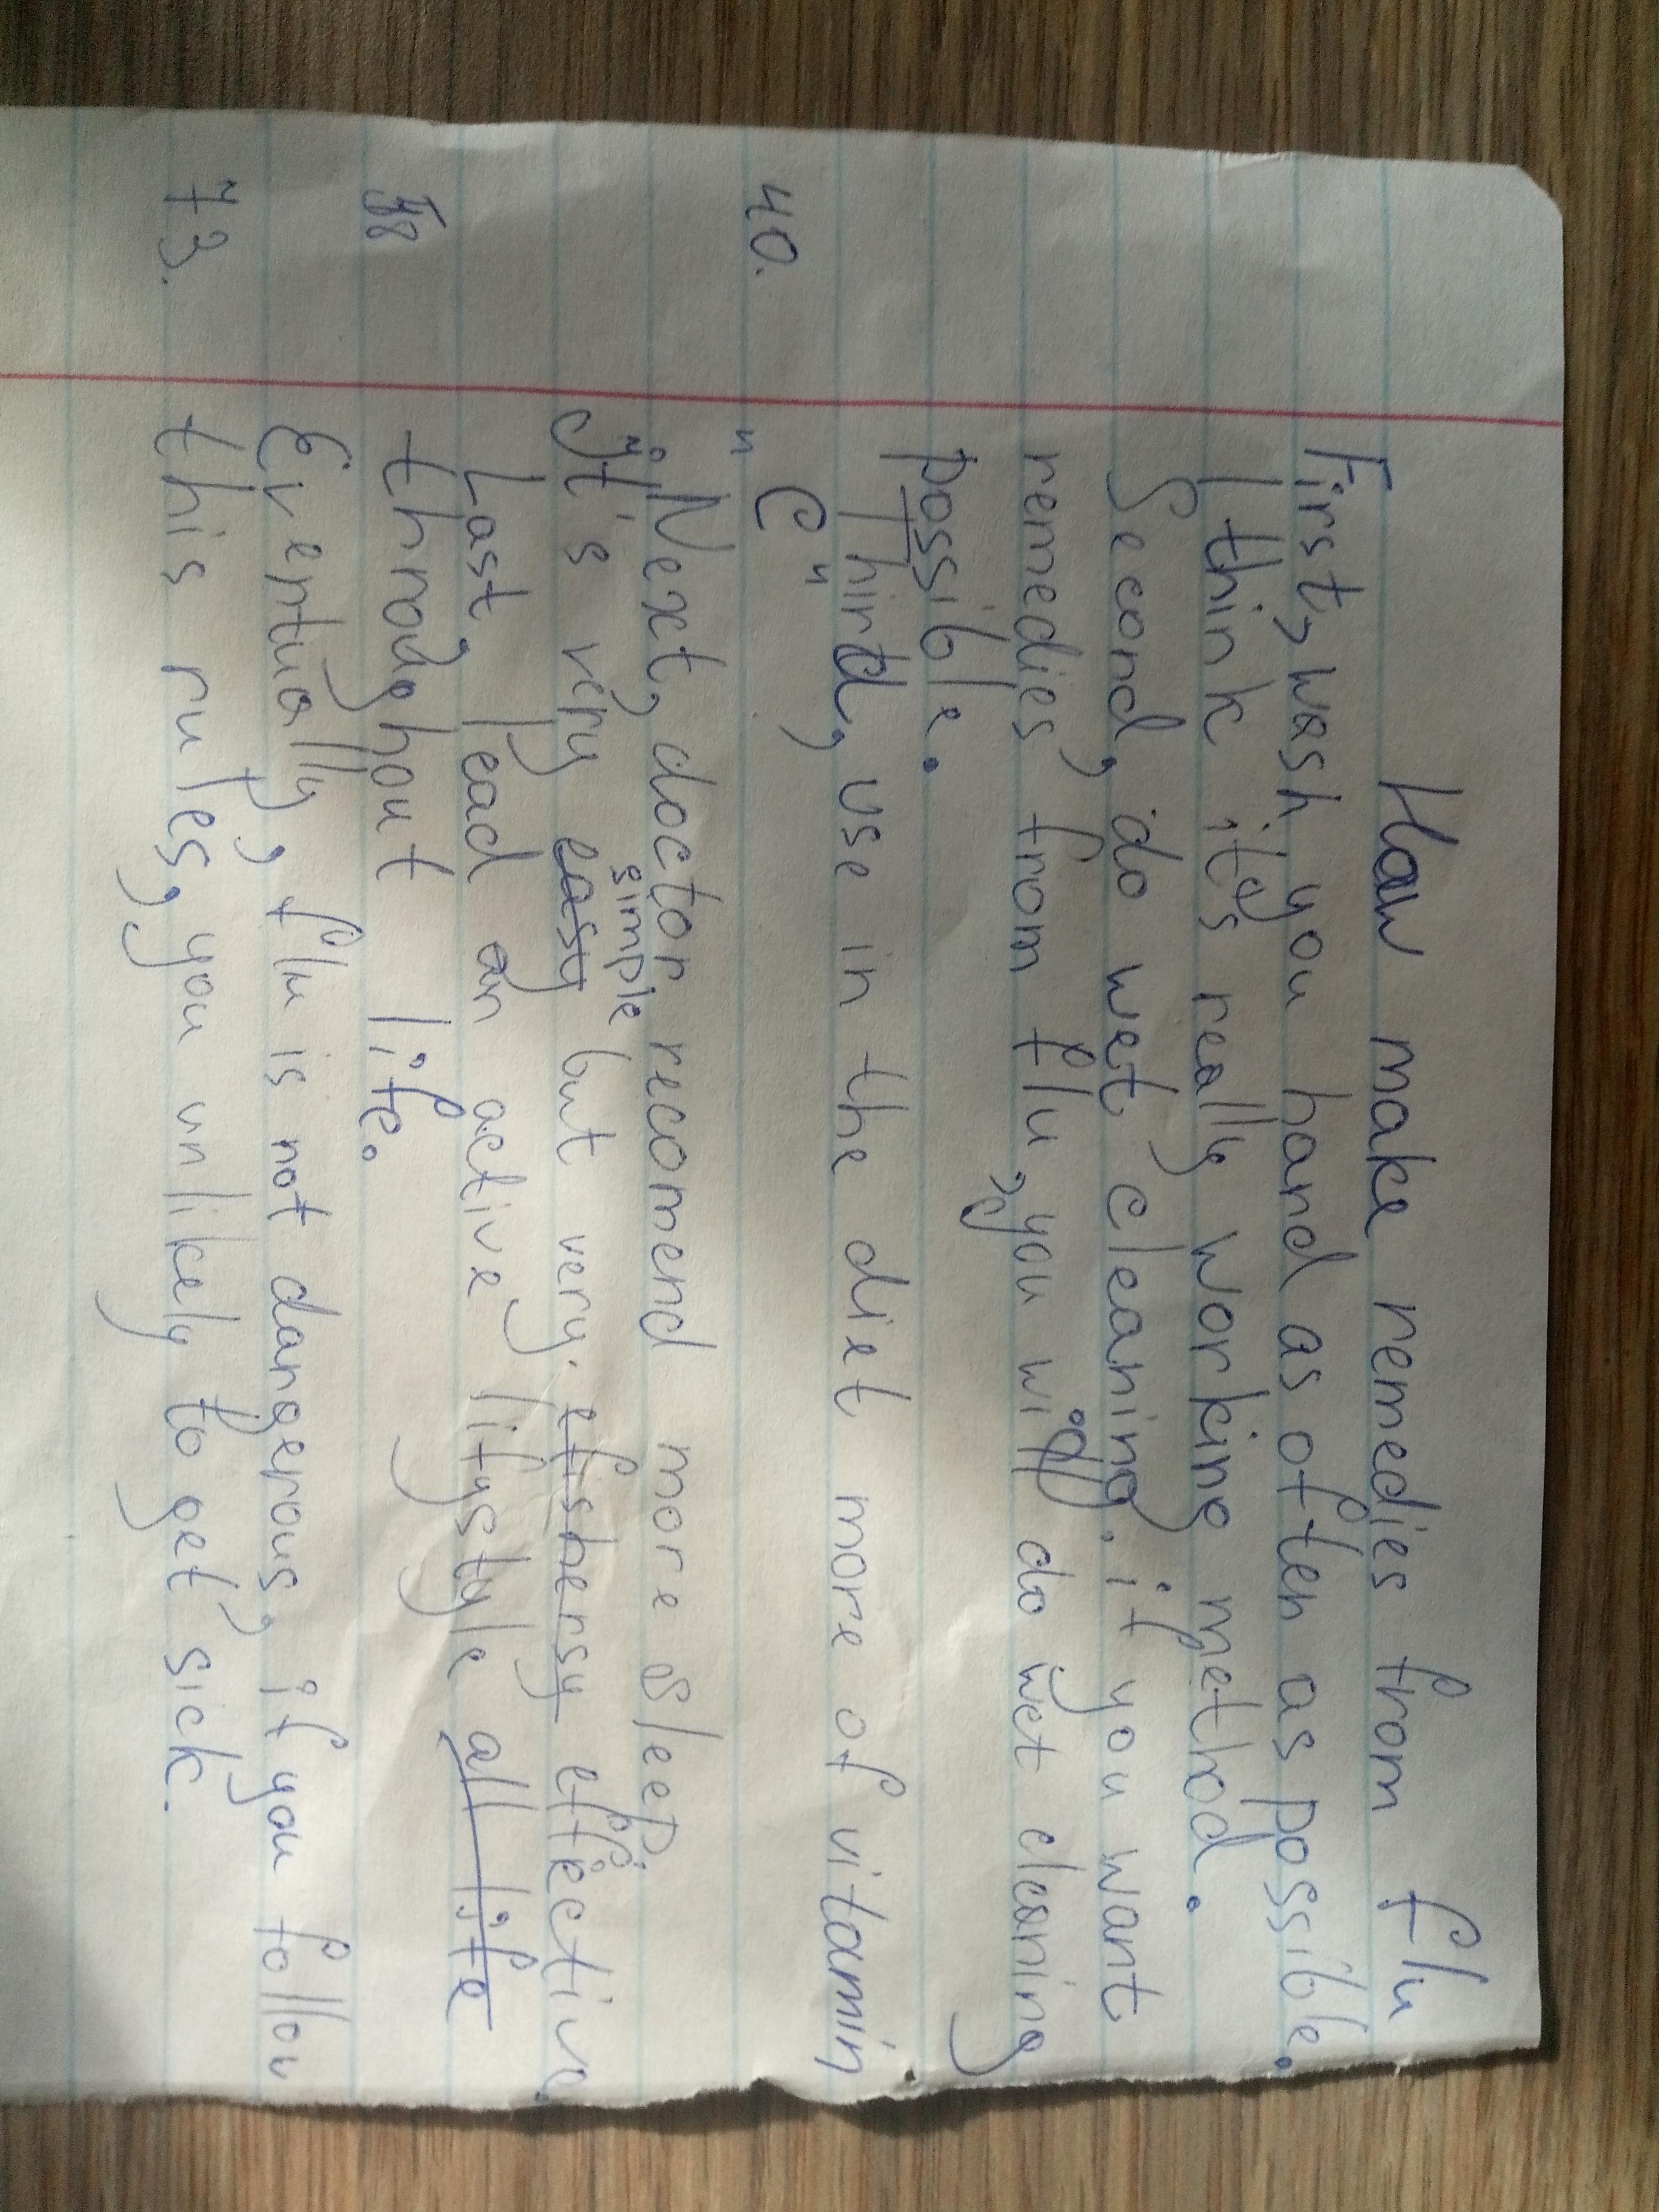 How make remedies from flu
First, wash you hand as often as possible.
I think it's really working method.
Second, do wet cleaning, if you want
remedies from flu, you will do wet cleaning
possible.
Third, use in the diet more of vitamin
40. "C"
Next, doctor recomend more sleep.
simple
It's very easy but very efishersy effective.
Last, lead an active lifystyle all life
58 throughout life.
Eventually, flu is not dangerous, if you follow
73. this rules, you unlikely to get sick.